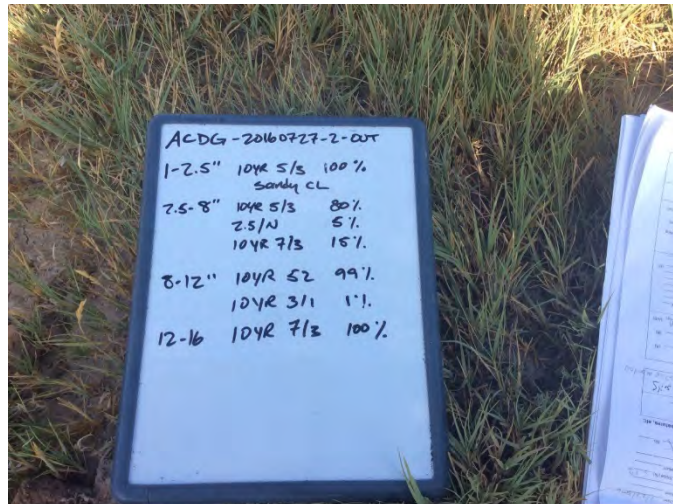 ACDG-20160727-2-OUT
1-2.5" 10YR 5/3 100%
Sandy CL
2.5-8" 10YR 5/3 80%
2.5/N 5%
10YR 7/3 15%
8-12" 10YR 52 99%
10YR 3/1 1%
12-16 10YR 7/3 100%